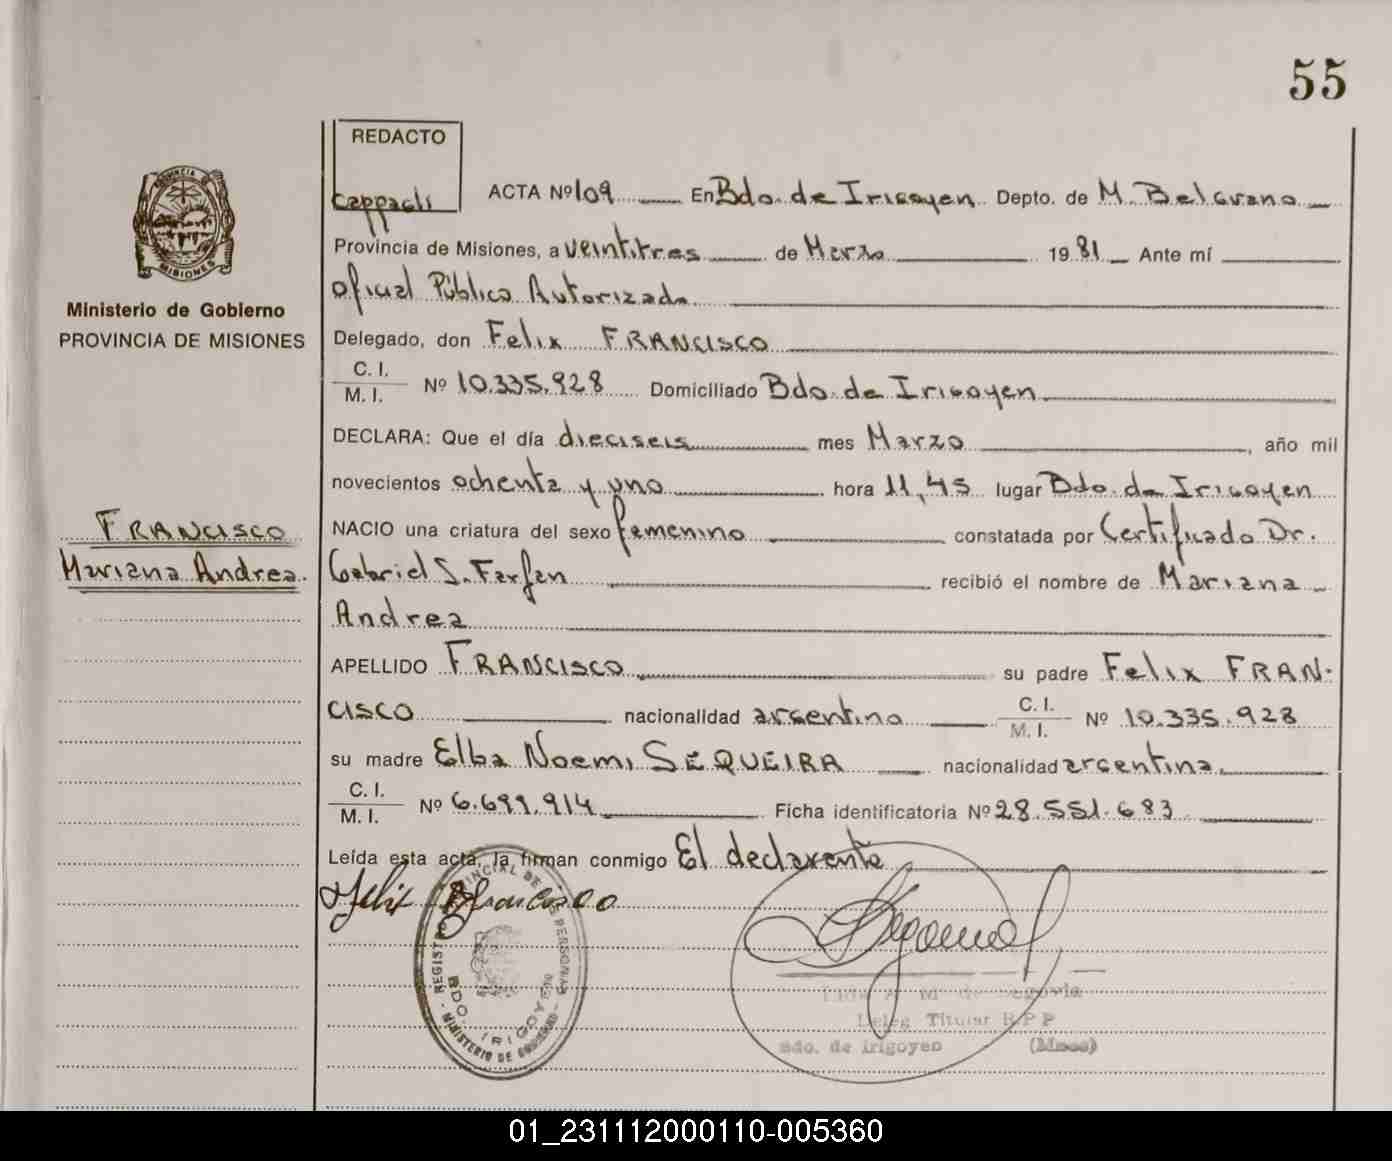 55
REDACTO
Cappagli
ACTA Nº 109 En Bdo. de Irigoyen Depto. de M. Belgrano
Provincia de Misiones, a veintitres de Marzo 1981 Ante mí
Oficial Público Autorizado
Ministerio de Gobierno
PROVINCIA DE MISIONES
Delegado, don Felix FRANCISCO
C. I.
M. I. Nº 10.335.928 Domiciliado Bdo. de Irigoyen
DECLARA: Que el día dieciseis mes Marzo, año mil
novecientos ochenta y uno hora 11,45 lugar Bdo. de Irigoyen
FRANCISCO
Mariana Andrea.
NACIO una criatura del sexo femenino constatada por Certificado Dr.
Gabriel S. Farfan recibió el nombre de Mariana
Andrea
APELLIDO FRANCISCO su padre Felix FRAN-
CISCO nacionalidad argentino C. I.
M. I. Nº 10.335.928
su madre Elba Noemi SEQUEIRA nacionalidad argentina.
C. I.
M. I. Nº 6.699.914 Ficha identificatoria Nº 28.551.683
Leída esta acta, la firman conmigo El declarante
Felix Francisco
REGISTRO PROVINCIAL DE LAS PERSONAS
BDO. IRIGOYEN
MINISTERIO DE GOBIERNO
Mª de Segovia
Deleg. Titular R P P
Bdo. de Irigoyen (Mnes)
PROVINCIA
MISIONES
01_231112000110-005360